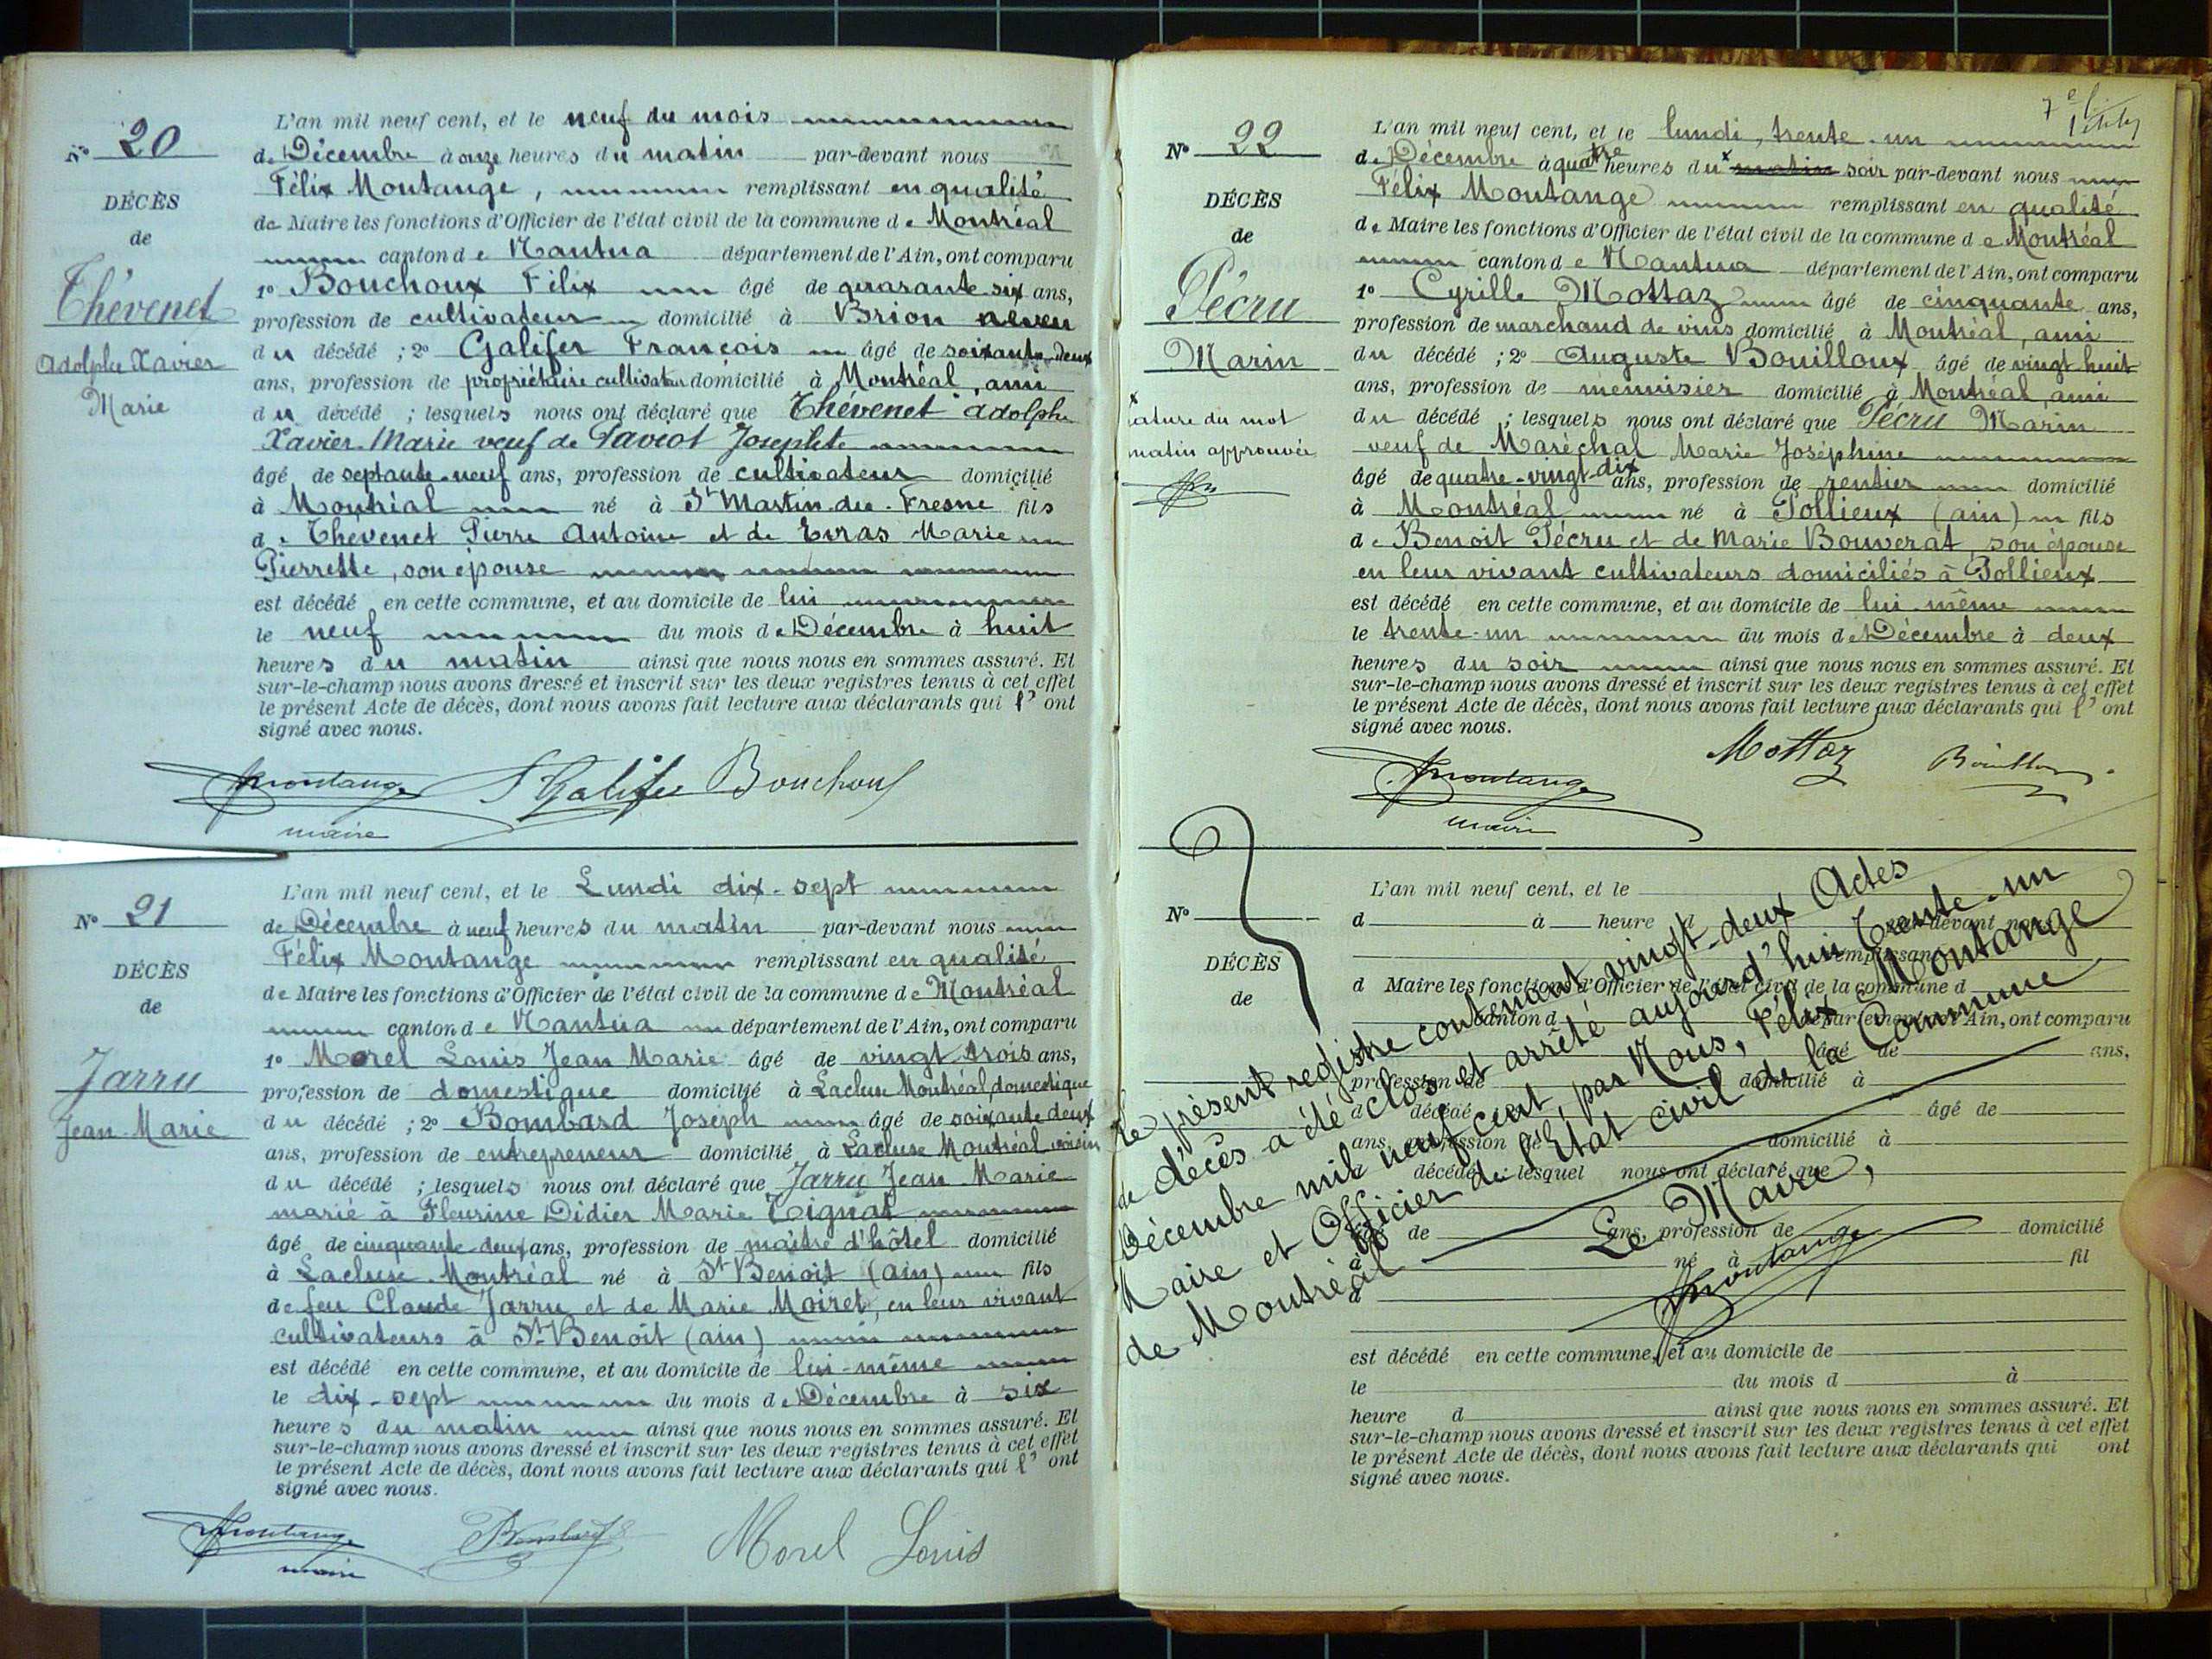 N° 20
DÉCÈS
de
Thévenet
Adolphe Xavier
Marie
L'an mil neuf cent, et le neuf du mois
de Décembre à onze heures du matin par-devant nous
Félix Montange, remplissant en qualité
de Maire les fonctions d'Officier de l'état civil de la commune de Montréal
canton de Nantua département de l'Ain, ont comparu
1° Bouchoux Félix âgé de quarante-six ans,
profession de cultivateur domicilié à Brion neveu
du décédé ; 2° Galifer François âgé de soixante-deux
ans, profession de propriétaire cultivateur domicilié à Montréal, ami
du décédé ; lesquels nous ont déclaré que Thévenet Adolphe
Xavier Marie veuf de Paviot Josephte
âgé de septante-neuf ans, profession de cultivateur domicilié
à Montréal né à St Martin-du-Fresne fils
de Thévenet Pierre Antoine et de Evras Marie
Pierrette, son épouse
est décédé en cette commune, et au domicile de lui
le neuf du mois de Décembre à huit
heures du matin ainsi que nous nous en sommes assuré. Et
sur-le-champ nous avons dressé et inscrit sur les deux registres tenus à cet effet
le présent Acte de décès, dont nous avons fait lecture aux déclarants qui l'ont
signé avec nous.
Montange F Galifer Bouchoux
maire
N° 21
DÉCÈS
de
Jarru
Jean-Marie
L'an mil neuf cent, et le Lundi dix-sept
de Décembre à neuf heures du matin par-devant nous
Félix Montange remplissant en qualité
de Maire les fonctions d'Officier de l'état civil de la commune de Montréal
canton de Nantua département de l'Ain, ont comparu
1° Morel Louis Jean Marie âgé de vingt-trois ans,
profession de domestique domicilié à Lacluse Montréal, domestique
du décédé ; 2° Bombard Joseph âgé de soixante deux
ans, profession de entrepreneur domicilié à Lacluse Montréal voisin
du décédé ; lesquels nous ont déclaré que Jarru Jean-Marie
marié à Fleurine Didier Marie Tignat
âgé de cinquante-deux ans, profession de maître d'hôtel domicilié
à Lacluse-Montréal né à St Benoit (ain) fils
de feu Claude Jarru et de Marie Moiret, en leur vivant
cultivateurs à St-Benoit (ain)
est décédé en cette commune, et au domicile de lui-même
le dix-sept du mois de Décembre à six
heures du matin ainsi que nous nous en sommes assuré. Et
sur-le-champ nous avons dressé et inscrit sur les deux registres tenus à cet effet
le présent Acte de décès, dont nous avons fait lecture aux déclarants qui l'ont
signé avec nous.
Montange Bombard Morel Louis
maire
7e f
N° 22
DÉCÈS
de
Pécru
Marin
x
rature du mot
matin approuvée
L'an mil neuf cent, et le lundi, trente-un
de Décembre à quatre heures du x matin soir par-devant nous
Félix Montange remplissant en qualité
de Maire les fonctions d'Officier de l'état civil de la commune de Montréal
canton de Nantua département de l'Ain, ont comparu
1° Cyrille Mottaz âgé de cinquante ans,
profession de marchand de vins domicilié à Montréal, ami
du décédé ; 2° Auguste Bouilloux âgé de vingt huit
ans, profession de menuisier domicilié à Montréal, ami
du décédé ; lesquels nous ont déclaré que Pécru Marin
veuf de Maréchal Marie Joséphine
âgé de quatre-vingt-dix ans, profession de rentier domicilié
à Montréal né à Pollieux (ain) fils
de Benoit Pécru et de Marie Bouverat, son épouse
en leur vivant cultivateurs domiciliés à Pollieux
est décédé en cette commune, et au domicile de lui-même
le trente-un du mois de Décembre à deux
heures du soir ainsi que nous nous en sommes assuré. Et
sur-le-champ nous avons dressé et inscrit sur les deux registres tenus à cet effet
le présent Acte de décès, dont nous avons fait lecture aux déclarants qui l'ont
signé avec nous.
Montange Mottaz Bouilloux
maire
N°
DÉCÈS
de
L'an mil neuf cent, et le
d à heure d par-devant nous
remplissant
d Maire les fonctions d'Officier de l'état civil de la commune d
canton d département de l'Ain, ont comparu
âgé de ans,
profession de domicilié à
d décédé âgé de
ans, profession de domicilié à
d décédé ; lesquel nous ont déclaré que
âgé de ans, profession de domicilié
à né à fil
d
est décédé en cette commune, et au domicile de
le du mois d à
heure d ainsi que nous nous en sommes assuré. Et
sur-le-champ nous avons dressé et inscrit sur les deux registres tenus à cet effet
le présent Acte de décès, dont nous avons fait lecture aux déclarants qui ont
signé avec nous.
Le présent registre contenant vingt-deux Actes
de décès a été clos et arrêté aujourd'hui Trente-un
Décembre mil neuf cent, par Nous, Félix Montange
Maire et Officier de l'Etat civil de la Commune
de Montréal
Le Maire,
Montange